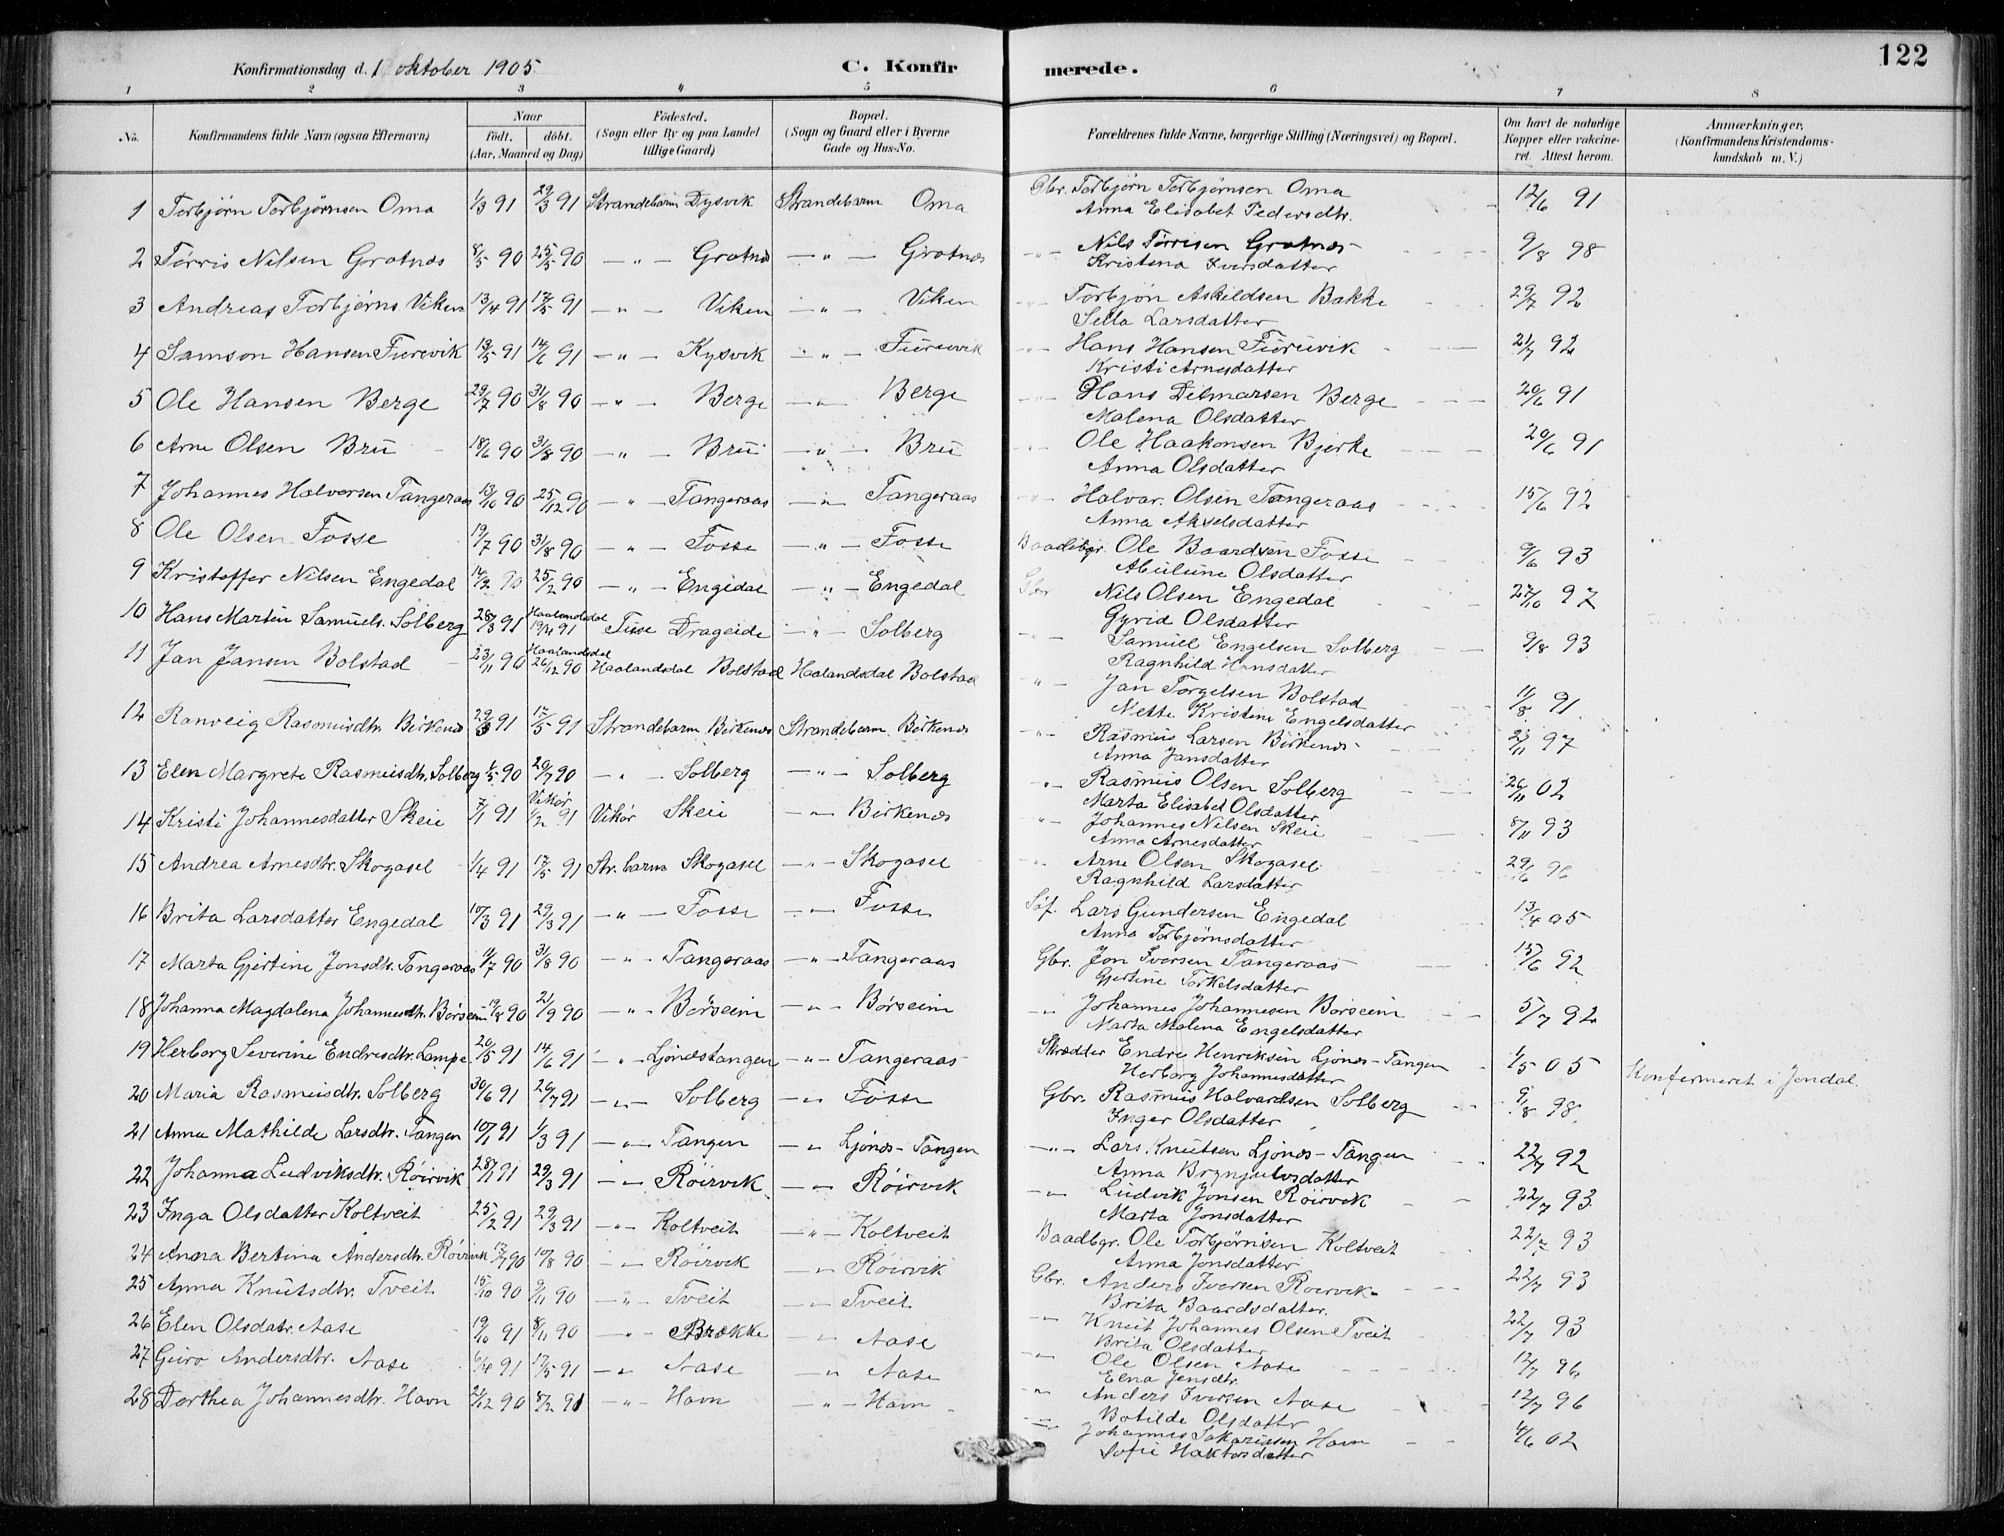 122
Konfirmationsdag d. 1 oktober 1905.
C. Konfir
merede.
1 2 3 4 5 6 7 8
No.
Konfirmandens fulde Navn (ogsaa Efternavn)
Naar
födt. döbt.
(Aar, Maaned og Dag)
Födested.
(Sogn eller By og paa Landet
tillige Gaard)
Bopæl.
(Sogn og Gaard eller i Byerne
Gade og Hus-No.
Forældrenes fulde Navne, borgerlige Stilling (Næringsvei) og Bopæl.
Om havt de naturlige
Kopper eller vakcine-
ret. Attest herom.
Anmærkninger.
(Konfirmandens Kristendoms-
kundskab m. V.)
1 Torbjörn Torbjørnsen Oma 1/3 91 29/3 91 Strandebarm Dysvik Strandebarm Oma Gbr. Torbjørn Torbjørnsen Oma 12/6 91
Anna Elisabet Pedersdtr.
2 Tørris Nilsen Grotnæs 8/5 90 25/5 90 — " — Grotnæs — " — Grotnæs — " — Nils Tørrisen Grotnæs 9/8 98
Kristena Iversdatter
3 Andreas Torbjørns Viken 13/4 91 17/5 91 — " — Viken — " — Viken Torbjøn Askildsen Bakke 29/7 92
Sella Larsdatter
4 Samson Hansen Furevik 19/5 91 14/6 91 — " — Kysvik — " — Furuvik Hans Hansen Furuvik 21/7 92
Kristi Arnesdatter
5 Ole Hansen Berge 29/7 90 31/8 90 — " — Berge — " — Berge Hans Detmarsen Berge 20/6 91
Malena Olsdatter
6 Arne Olsen Bru 18/6 90 31/8 90 — " — Bru — " — Bru Ole Haakonsen Bjerke 20/6 91
Anna Olsdatter
7 Johannes Halvorsen Tangeraas 13/10 90 25/12 90 — " — Tangeraas — " — Tangeraas Halvar Olsen Tangeraas 15/6 92
Anna Akselsdatter
8 Ole Olsen Fosse 19/7 90 31/8 90 — " — Fosse — " — Fosse Baadebgr. Ole Baardsen Fosse 9/6 93
Abelune Olsdatter
9 Kristoffer Nilsen Engedal 14/2 90 25/2 90 — " — Engidal — " — Engedal Nils Olsen Engedal 27/10 97
Gyrid Olsdatter
10 Hans Martin Samuels. Solberg 28/3 91 Haalandsdal 19/4 91 Fuse Drageide — " — Solberg Samuel Engelsen Solberg 9/8 93
Ragnhild Hansdatter
11 Jan Jansen Bolstad 23/11 90 Haalandsdal 26/12 90 Haalandsdal Bolstad Haalandsdal Bolstad — " — Jan Torgelsen Bolstad 11/8 91
Nette Kristine Engelsdatter
12 Ranveig Rasmusdtr. Birkenæs 29/3 91 17/5 91 Strandebarm Birkenæs Strandebarm Birkenæs — " — Rasmus Larsen Birkenæs 97
Anna Jansdatter
13 Elen Margrete Rasmusdtr. Solberg 1/5 90 20/7 90 — " — Solberg — " — Solberg — " — Rasmus Olsen Solberg 26/11 02
Marta Elisabet Olsdatter
14 Kristi Johannesdatter Skeie 7/1 91 Vikør 1/2 91 Vikør Skeie — " — Birkenæs Johannes Nilsen Skeie 8/11 93
Anna Arnesdatter
15 Andrea Arnesdtr. Skogasel 1/4 91 17/5 91 Str. barm Skogasel — " — Skogasel Arne Olsen Skogasel 29/6 96
Ragnhild Larsdatter
16 Brita Larsdatter Engedal 10/3 91 29/3 91 — " — Fosse — " — Fosse Lars Gundersen Engedal 13/4 05
Anna Torbjørnsdatter
17 Marta Gjertine Jonsdtr. Tangeraas 11/7 90 31/8 90 — " — Tangeraas — " — Tangeraas Gbr. Jon Iversen Tangeraas 15/6 92
Gjertine Torkelsdatter
18 Johanna Magdalena Johannesdtr. Børseim 19/8 90 21/9 90 — " — Børseim — " — Børseim — " — Johannes Johannesen Børseim 5/7 92
Marta Malena Engelsdatter
19 Herborg Severine Endresdtr. Lampe 20/5 91 14/6 91 — " — Ljónæstangen — " — Tangeraas Skrædder Endre Henriksen Ljónæs-Tangen 1/5 05 Konfermeret i Jondal.
Herborg Johannesdatter
20 Maria Rasmusdtr. Solberg 30/6 91 26/7 91 — " — Solberg — " — Fosse Gbr. Rasmus Halvardsen Solberg 9/8 98
Inger Olsdatter
21 Anna Mathilde Larsdtr. Tangen 10/1 91 1/3 91 — " — Tangen — " — Ljónæs-Tangen — " — Lars Knutsen Ljónæs-Tangen 22/7 92
Anna Brynjulvsdatter
22 Johanna Ludviksdtr. Röirvik 28/1 91 29/3 91 — " — Röirvik — " — Röirvik — " — Ludvik Jonsen Röirvik 22/7 93
Marta Jonsdatter
23 Inga Olsdatter Koltveit 25/2 91 29/3 91 — " — Koltveit — " — Koltveit Baadbgr. Ole Torbjørnsen Koltveit 22/7 93
Anna Jonsdatter
24 Anna Bertina Andersdtr. Röirvik 17/7 90 10/8 90 — " — Röirvik — " — Röirvik Gbr. Anders Iversen Roirvik 22/7 93
Brita Baardsdatter.
25 Anna Knutsdtr. Tveit 15/10 90 9/11 90 — " — Tveit — " — Tveit — " — Knut Johannes Olsen Tveit 22/7 93
Brita Olsdatter
26 Elen Olsdatr. Aase 19/10 91 8/11 90 — " — Brække — " — Aase — " — Ole Olsen Aase 12/7 96
Elna Jensdtr.
27 Guro Andersdtr. Aase 6/4 91 17/5 91 — " — Aase — " — Aase — " — Anders Iversen Aase 12/7 96
Botilde Olsdatter
28 Dorthea Johannesdtr. Havn 21/12 90 8/2 91 — " — Havn — " — Havn Johannes Sakariasen Havn 4/6 02
Sofie Haktorsdatter